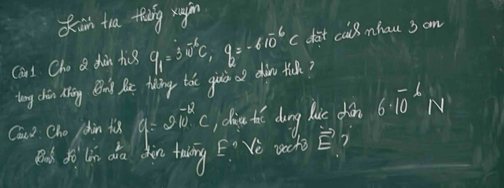 Kiểm tra thường xuyên
Câu 1 Cho 2 điện tích q₁ = 3·10⁻⁶C, q₂ = -6·10⁻⁶ C đặt cách nhau 3 cm
trong chân không tính lực tương tác giữa 2 điện tích?
Câu 2: Cho điện tích q = 2·10⁻¹² C, chịu tác dụng lực điện 6·10⁻⁶ N
tính độ lớn của điện trường E? Vẽ vectơ E⃗?